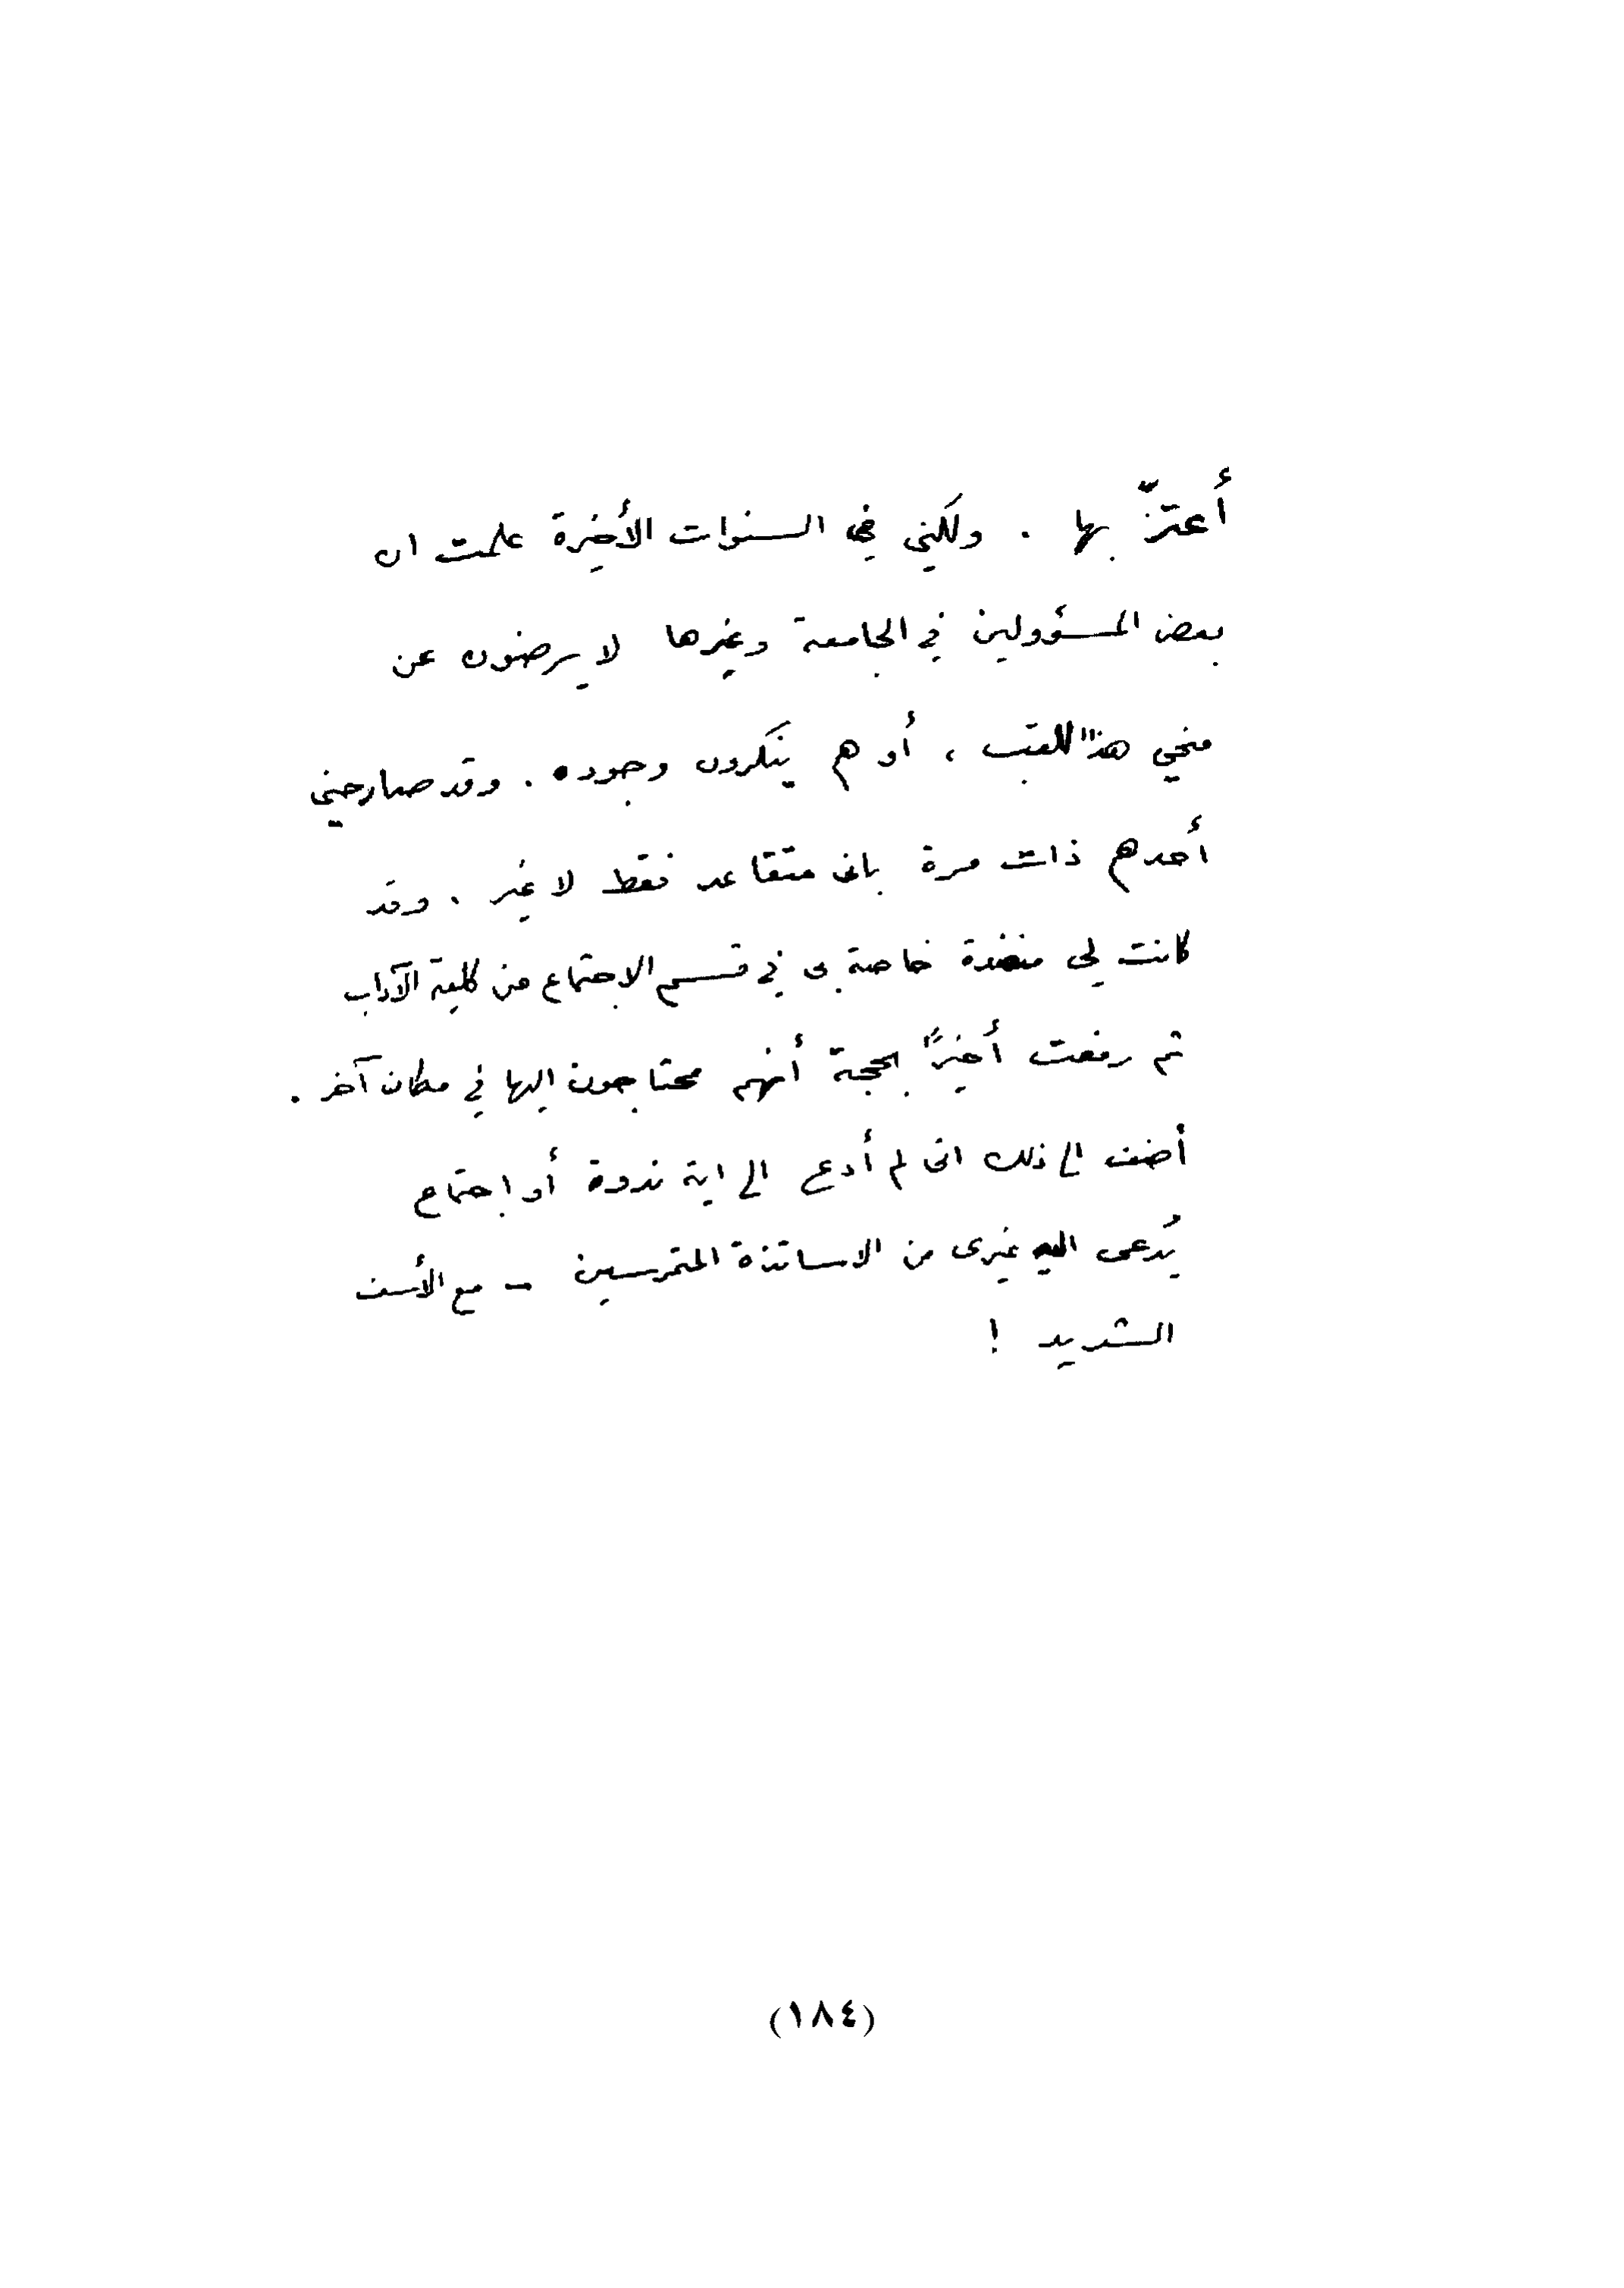 أعتزّ بها . ولكني في السنوات الأخيرة علمت ان
بعض المسؤولين في الجامعة وغيرها لا يرضون عن
منحي هذا اللقب ، أو هم ينكرون وجوده . وقد صارحني
أحدهم ذات مرة بانى متقاعد فقط لا غير . وقد
كانت لي منضدة خاصة بى في قسم الاجتماع من كلية الآداب
ثم رفعت أخيراً بحجة أنهم محتاجون اليها في مكان آخر .
أضف الى ذلك انى لم أدع الى اية ندوة أو اجتماع
يُدعى اليه غيرى من الاساتذة المتمرسين - مع الأسف
الشديد !
(١٨٤)